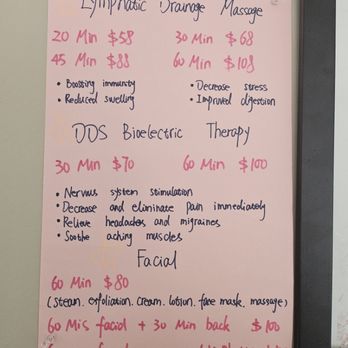 Lymphatic Drainage Massage
20 Min $58 30 Min $68
45 Min $88 60 Min $108
• Boosting immunity • Decrease stress
• Reduced swelling • Improved digestion
DDS Bioelectric Therapy
30 Min $70 60 Min $100
• Nervous system stimulation
• Decrease and eliminate pain immediately
• Relieve headaches and migraines
• Soothe aching muscles
Facial
60 Min $80
(steam. exfoliation. cream. lotion. face mask. massage)
60 Mis facial + 30 Min back $100